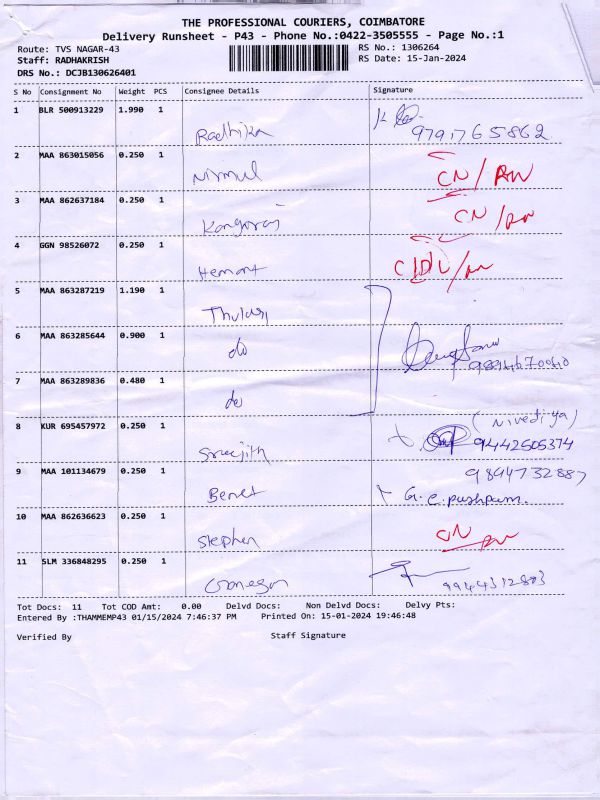 THE PROFESSIONAL COURIERS, COIMBATORE
Delivery Runsheet - P43 - Phone No.:0422-3505555 - Page No.:1
Route: TVS NAGAR-43 RS No.: 1306264
Staff: RADHAKRISH RS Date: 15-Jan-2024
DRS No.: DCJB130626401
S No Consignment No Weight PCS Consignee Details Signature
1 BLR 500913229 1.990 1
Radhika 9791765862
2 MAA 863015056 0.250 1
Nirmul CN/RN
3 MAA 862637184 0.250 1
CN/RN
4 GGN 98526072 0.250 1
Hemant
5 MAA 863287219 1.190 1
Thulasi
6 MAA 863285644 0.900 1
do
7 MAA 863289836 0.480 1
do
8 KUR 695457972 0.250 1 (Nivediya)
Sreejith 9442505374
9 MAA 101134679 0.250 1 9894732887
Benet G. e. pushpam.
10 MAA 862636623 0.250 1
Stephen CN RN
11 SLM 336848295 0.250 1
Tot Docs: 11 Tot COD Amt: 0.00 Delvd Docs: Non Delvd Docs: Delvy Pts:
Entered By :THAMMEMP43 01/15/2024 7:46:37 PM Printed On: 15-01-2024 19:46:48
Verified By Staff Signature